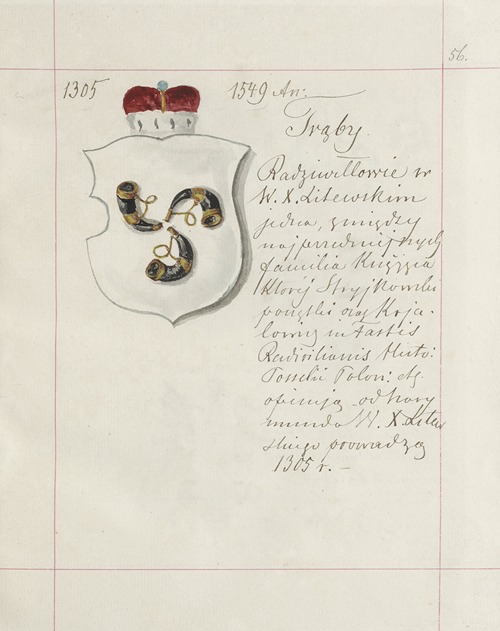 56.
1305
1549 An:
Trąby.
Radziwiłłowie w
W. X. Litewskim
jedna, z między
najprzedniejszych
familia Książęca
której Stryjkowski
początki oraz Koja-
lowicz in Fastis
Radivilianis
Polon:
od Nary
munda W. X. Litew
skiego prowadzą
1305 r. –